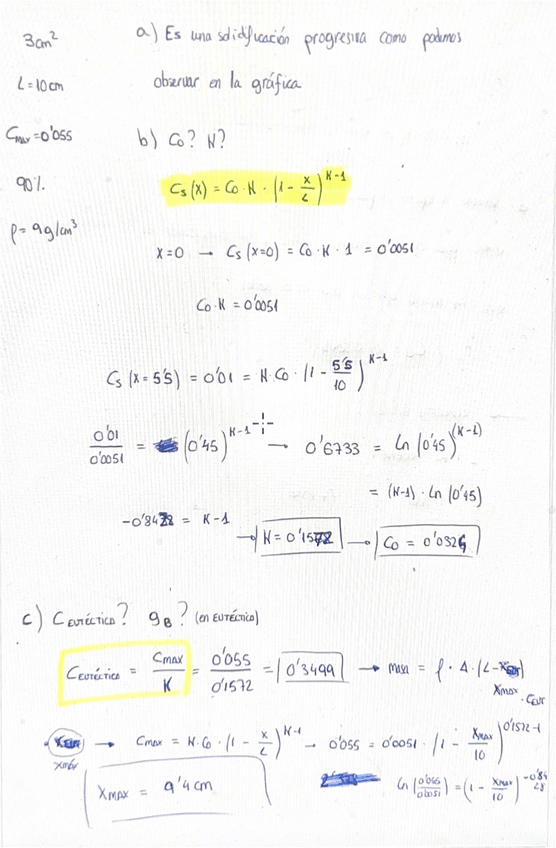 3cm²
L=10cm
Cmax=0'055
90%
ρ=9g/cm³
a) Es una solidificación progresiva como podemos
observar en la gráfica
b) Co? K?
Cs(x) = Co·K·(1 - x/L)^K-1
x=0 → Cs(x=0) = Co·K·1 = 0'0051
Co·K = 0'0051
Cs(x=5'5) = 0'01 = K·Co·(1 - 5'5/10)^K-1
0'01/0'0051 = (0'45)^K-1 → 0'6733 = ln(0'45)^(K-1)
= (K-1)·ln(0'45)
-0'8428 = K-1
→ K=0'1572 → Co = 0'0324
c) Ceutéctico? gB? (en eutéctico)
Ceutéctico = Cmax/K = 0'055/0'1572 = 0'3499 → masa = ρ·A·(L-Xmax)·Ceut
xmáx → Cmax = K·Co·(1 - x/L)^K-1 → 0'055 = 0'0051·(1 - Xmax/10)^0'1572-1
Xmax = 9'4cm
ln(0'055/0'0051) = (1 - Xmax/10)^-0'8428